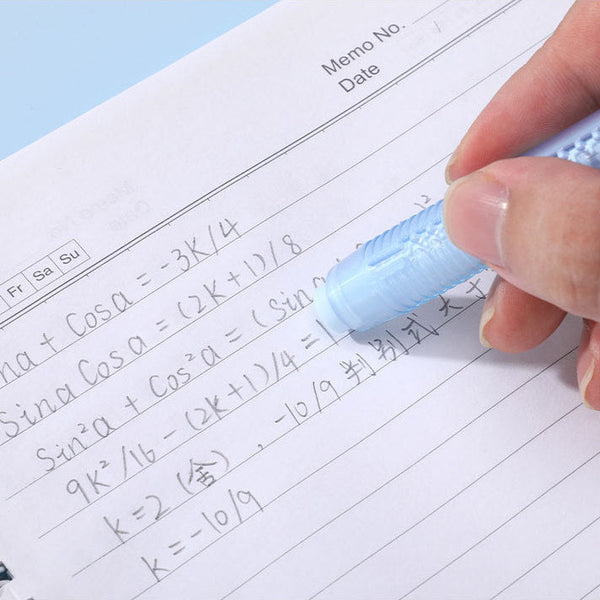 Memo No.
Date
Fr Sa Su
na + Cosa = -3K/4
Sina Cosa = (2K+1)/8
Sin²a + Cos²a = (Sina )²
9K²/16 - (2K+1)/4 = 1
k = 2 (舍) , -10/9 判别式大于
k = -10/9